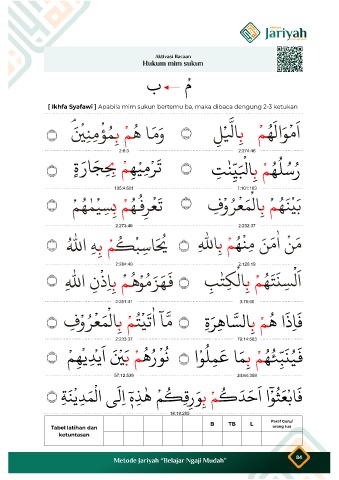 Jariyah
Aktivasi Bacaan
Hukum mim sukun
مْ ← ب
[ Ikhfa Syafawi ] Apabila mim sukun bertemu ba, maka dibaca dengung 2-3 ketukan
اَمْوَالَهُمْ بِالَّيْلِ وَمَا هُمْ بِمُؤْمِنِيْنَۘ
2:274:46 2:8:3
رُسُلُهُمْ بِالْبَيِّنٰتِ تَرْمِيْهِمْ بِحِجَارَةٍ
7:101:163 105:4:601
بَيْنَهُمْ بِالْمَعْرُوْفِ تَعْرِفُهُمْ بِسِيْمٰهُمْ
2:232:37 2:273:46
مَنْ اٰمَنَ مِنْهُمْ بِاللّٰهِ يُحَاسِبْكُمْ بِهِ اللّٰهُ
2:126:19 2:284:49
اَلْسِنَتَهُمْ بِالْكِتٰبِ فَهَزَمُوْهُمْ بِاِذْنِ اللّٰهِ
3:78:60 2:251:41
فَاِذَا هُمْ بِالسَّاهِرَةِ مَّآ اٰتَيْتُمْ بِالْمَعْرُوْفِ
79:14:583 2:233:37
فَيُنَبِّئُهُمْ بِمَا عَمِلُوْا نُوْرُهُمْ بَيْنَ اَيْدِيْهِمْ
24:64:359 57:12:539
فَابْعَثُوْٓا اَحَدَكُمْ بِوَرِقِكُمْ هٰذِهٖٓ اِلَى الْمَدِيْنَةِ
18:19:295
Tabel latihan dan ketuntasan B TB L Paraf Guru/ orang tua
Metode Jariyah "Belajar Ngaji Mudah" 84